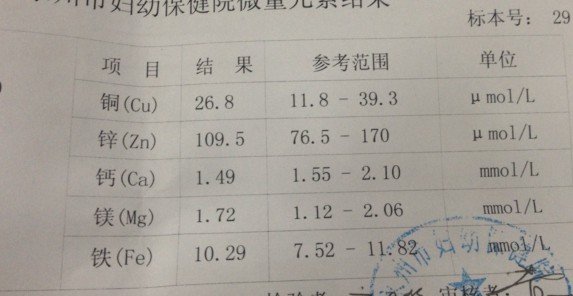 州市妇幼保健院微量元素结果
标本号: 29
项 目 结 果 参考范围 单位
铜(Cu) 26.8 11.8 - 39.3 μmol/L
锌(Zn) 109.5 76.5 - 170 μmol/L
钙(Ca) 1.49 1.55 - 2.10 mmol/L
镁(Mg) 1.72 1.12 - 2.06 mmol/L
铁(Fe) 10.29 7.52 - 11.82 mmol/L
州市妇幼保健院
检验者: 审核者: